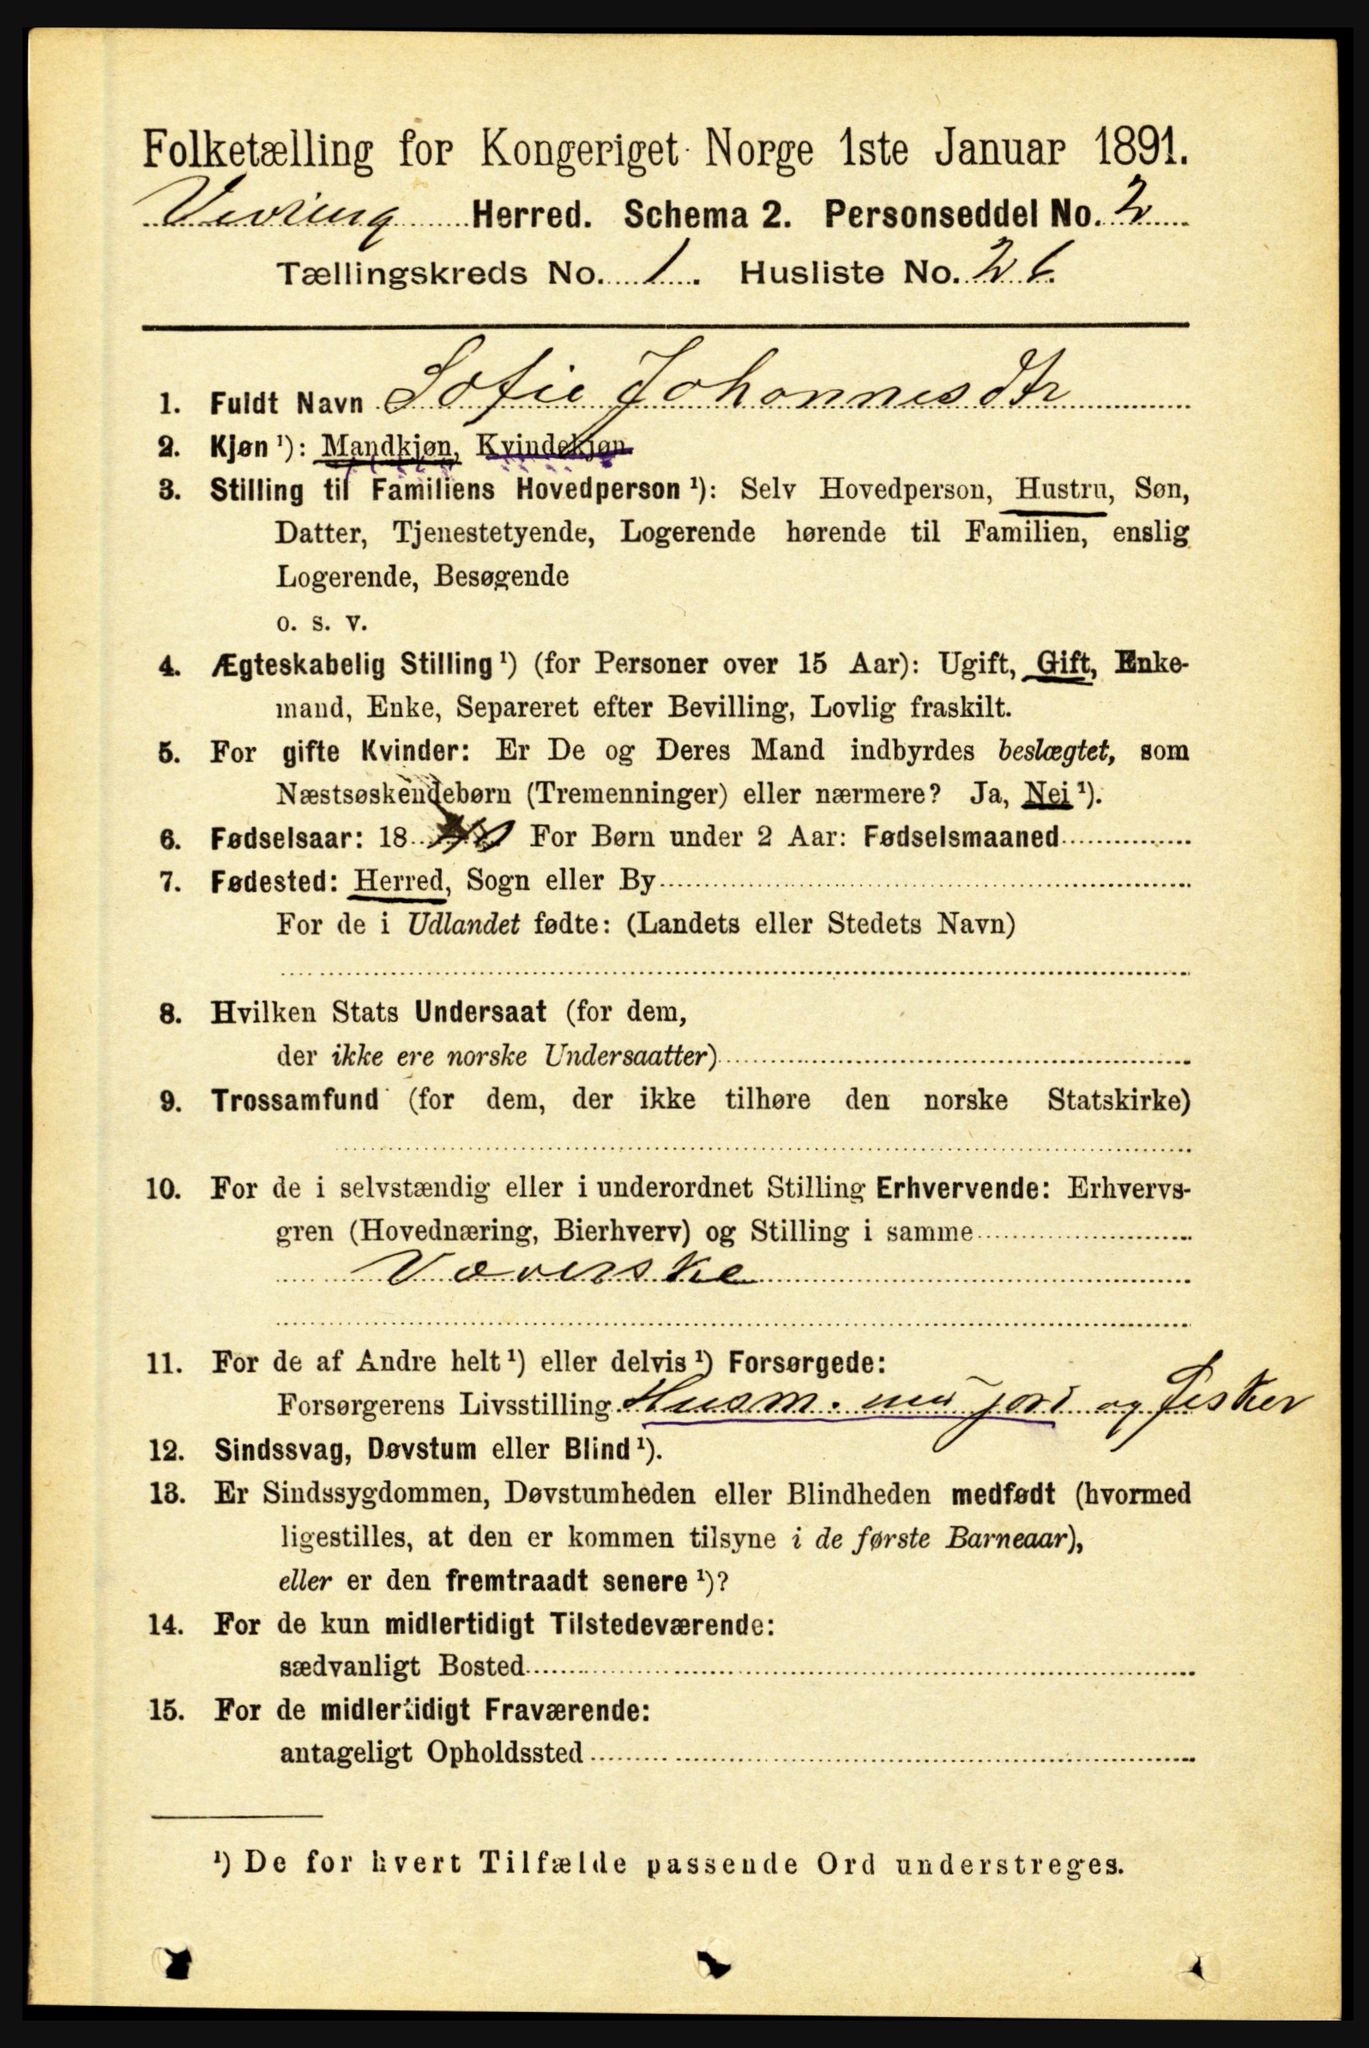 Folketælling for Kongeriget Norge 1ste Januar 1891.
Vevring Herred. Schema 2. Personseddel No. 2
Tællingskreds No. 1. Husliste No. 26.
1. Fuldt Navn Sofie Johannesdtr
2. Kjøn ¹): Mandkjøn, Kvindekjøn
3. Stilling til Familiens Hovedperson ¹): Selv Hovedperson, Hustru, Søn,
Datter, Tjenestetyende, Logerende hørende til Familien, enslig
Logerende, Besøgende
o. s. v.
4. Ægteskabelig Stilling ¹) (for Personer over 15 Aar): Ugift, Gift, Enke-
mand, Enke, Separeret efter Bevilling, Lovlig fraskilt.
5. For gifte Kvinder: Er De og Deres Mand indbyrdes beslægtet, som
Næstsøskendebørn (Tremenninger) eller nærmere? Ja, Nei ¹).
6. Fødselsaar: 18 For Børn under 2 Aar: Fødselsmaaned
7. Fødested: Herred, Sogn eller By
For de i Udlandet fødte: (Landets eller Stedets Navn)
8. Hvilken Stats Undersaat (for dem,
der ikke ere norske Undersaatter)
9. Trossamfund (for dem, der ikke tilhøre den norske Statskirke)
10. For de i selvstændig eller i underordnet Stilling Erhvervende: Erhvervs-
gren (Hovednæring, Bierhverv) og Stilling i samme
Væverske
11. For de af Andre helt ¹) eller delvis ¹) Forsørgede:
Forsørgerens Livsstilling Husm. med jord og fisker
12. Sindssvag, Døvstum eller Blind ¹).
13. Er Sindssygdommen, Døvstumheden eller Blindheden medfødt (hvormed
ligestilles, at den er kommen tilsyne i de første Barneaar),
eller er den fremtraadt senere ¹)?
14. For de kun midlertidigt Tilstedeværende:
sædvanligt Bosted
15. For de midlertidigt Fraværende:
antageligt Opholdssted
¹) De for hvert Tilfælde passende Ord understreges.